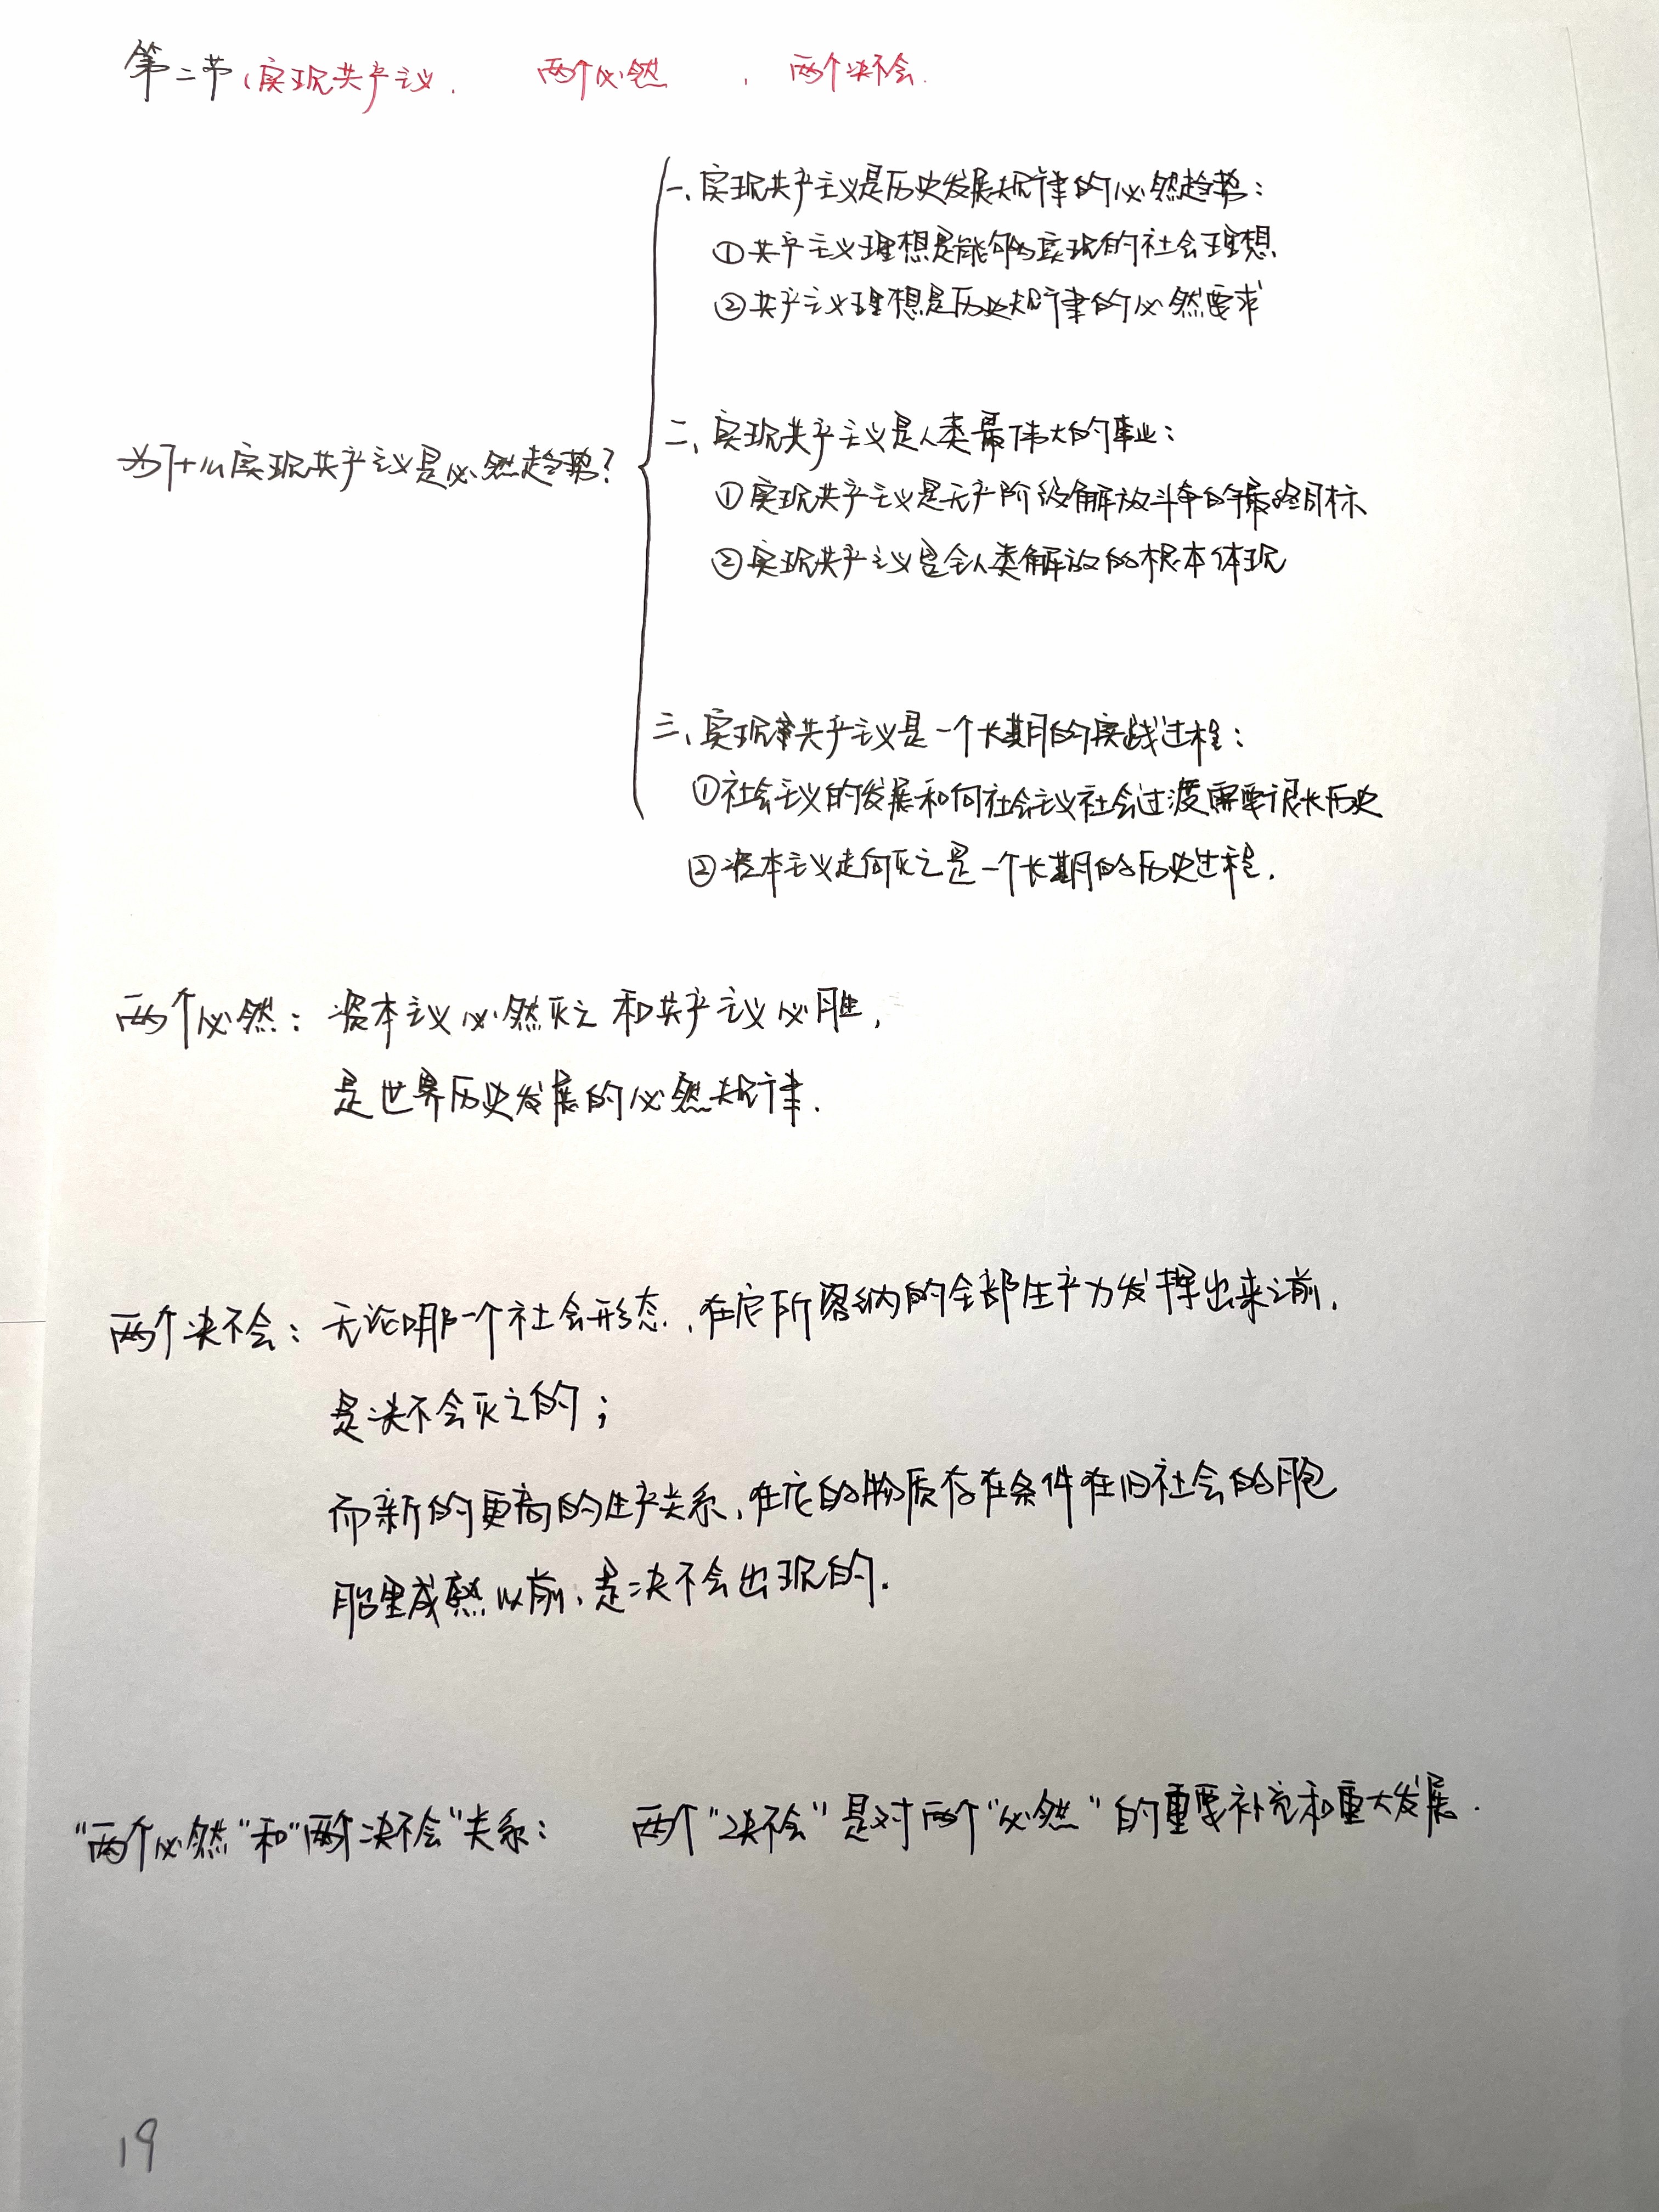 第二节、实现共产主义. 两个必然 , 两个决不会.
一、实现共产主义是历史发展规律的必然趋势:
①共产主义理想是能够实现的社会理想
②共产主义理想是历史规律的必然要求
为什么实现共产主义是必然趋势?
二、实现共产主义是人类最伟大的事业:
①实现共产主义是无产阶级解放斗争的最终目标
②实现共产主义是全人类解放的根本体现
三、实现共产主义是一个长期的实践过程:
①社会主义的发展和向社会主义社会过渡需要很长历史
②资本主义走向灭亡是一个长期的历史过程.
两个必然: 资本主义必然灭亡和共产主义必胜,
是世界历史发展的必然规律.
两个决不会: 无论哪一个社会形态, 在它所容纳的全部生产力发挥出来之前,
是决不会灭亡的;
而新的更高的生产关系, 在它的物质存在条件在旧社会的胞
胎里成熟以前, 是决不会出现的.
"两个必然"和"两个决不会"关系: 两个"决不会"是对两个"必然"的重要补充和重大发展.
19